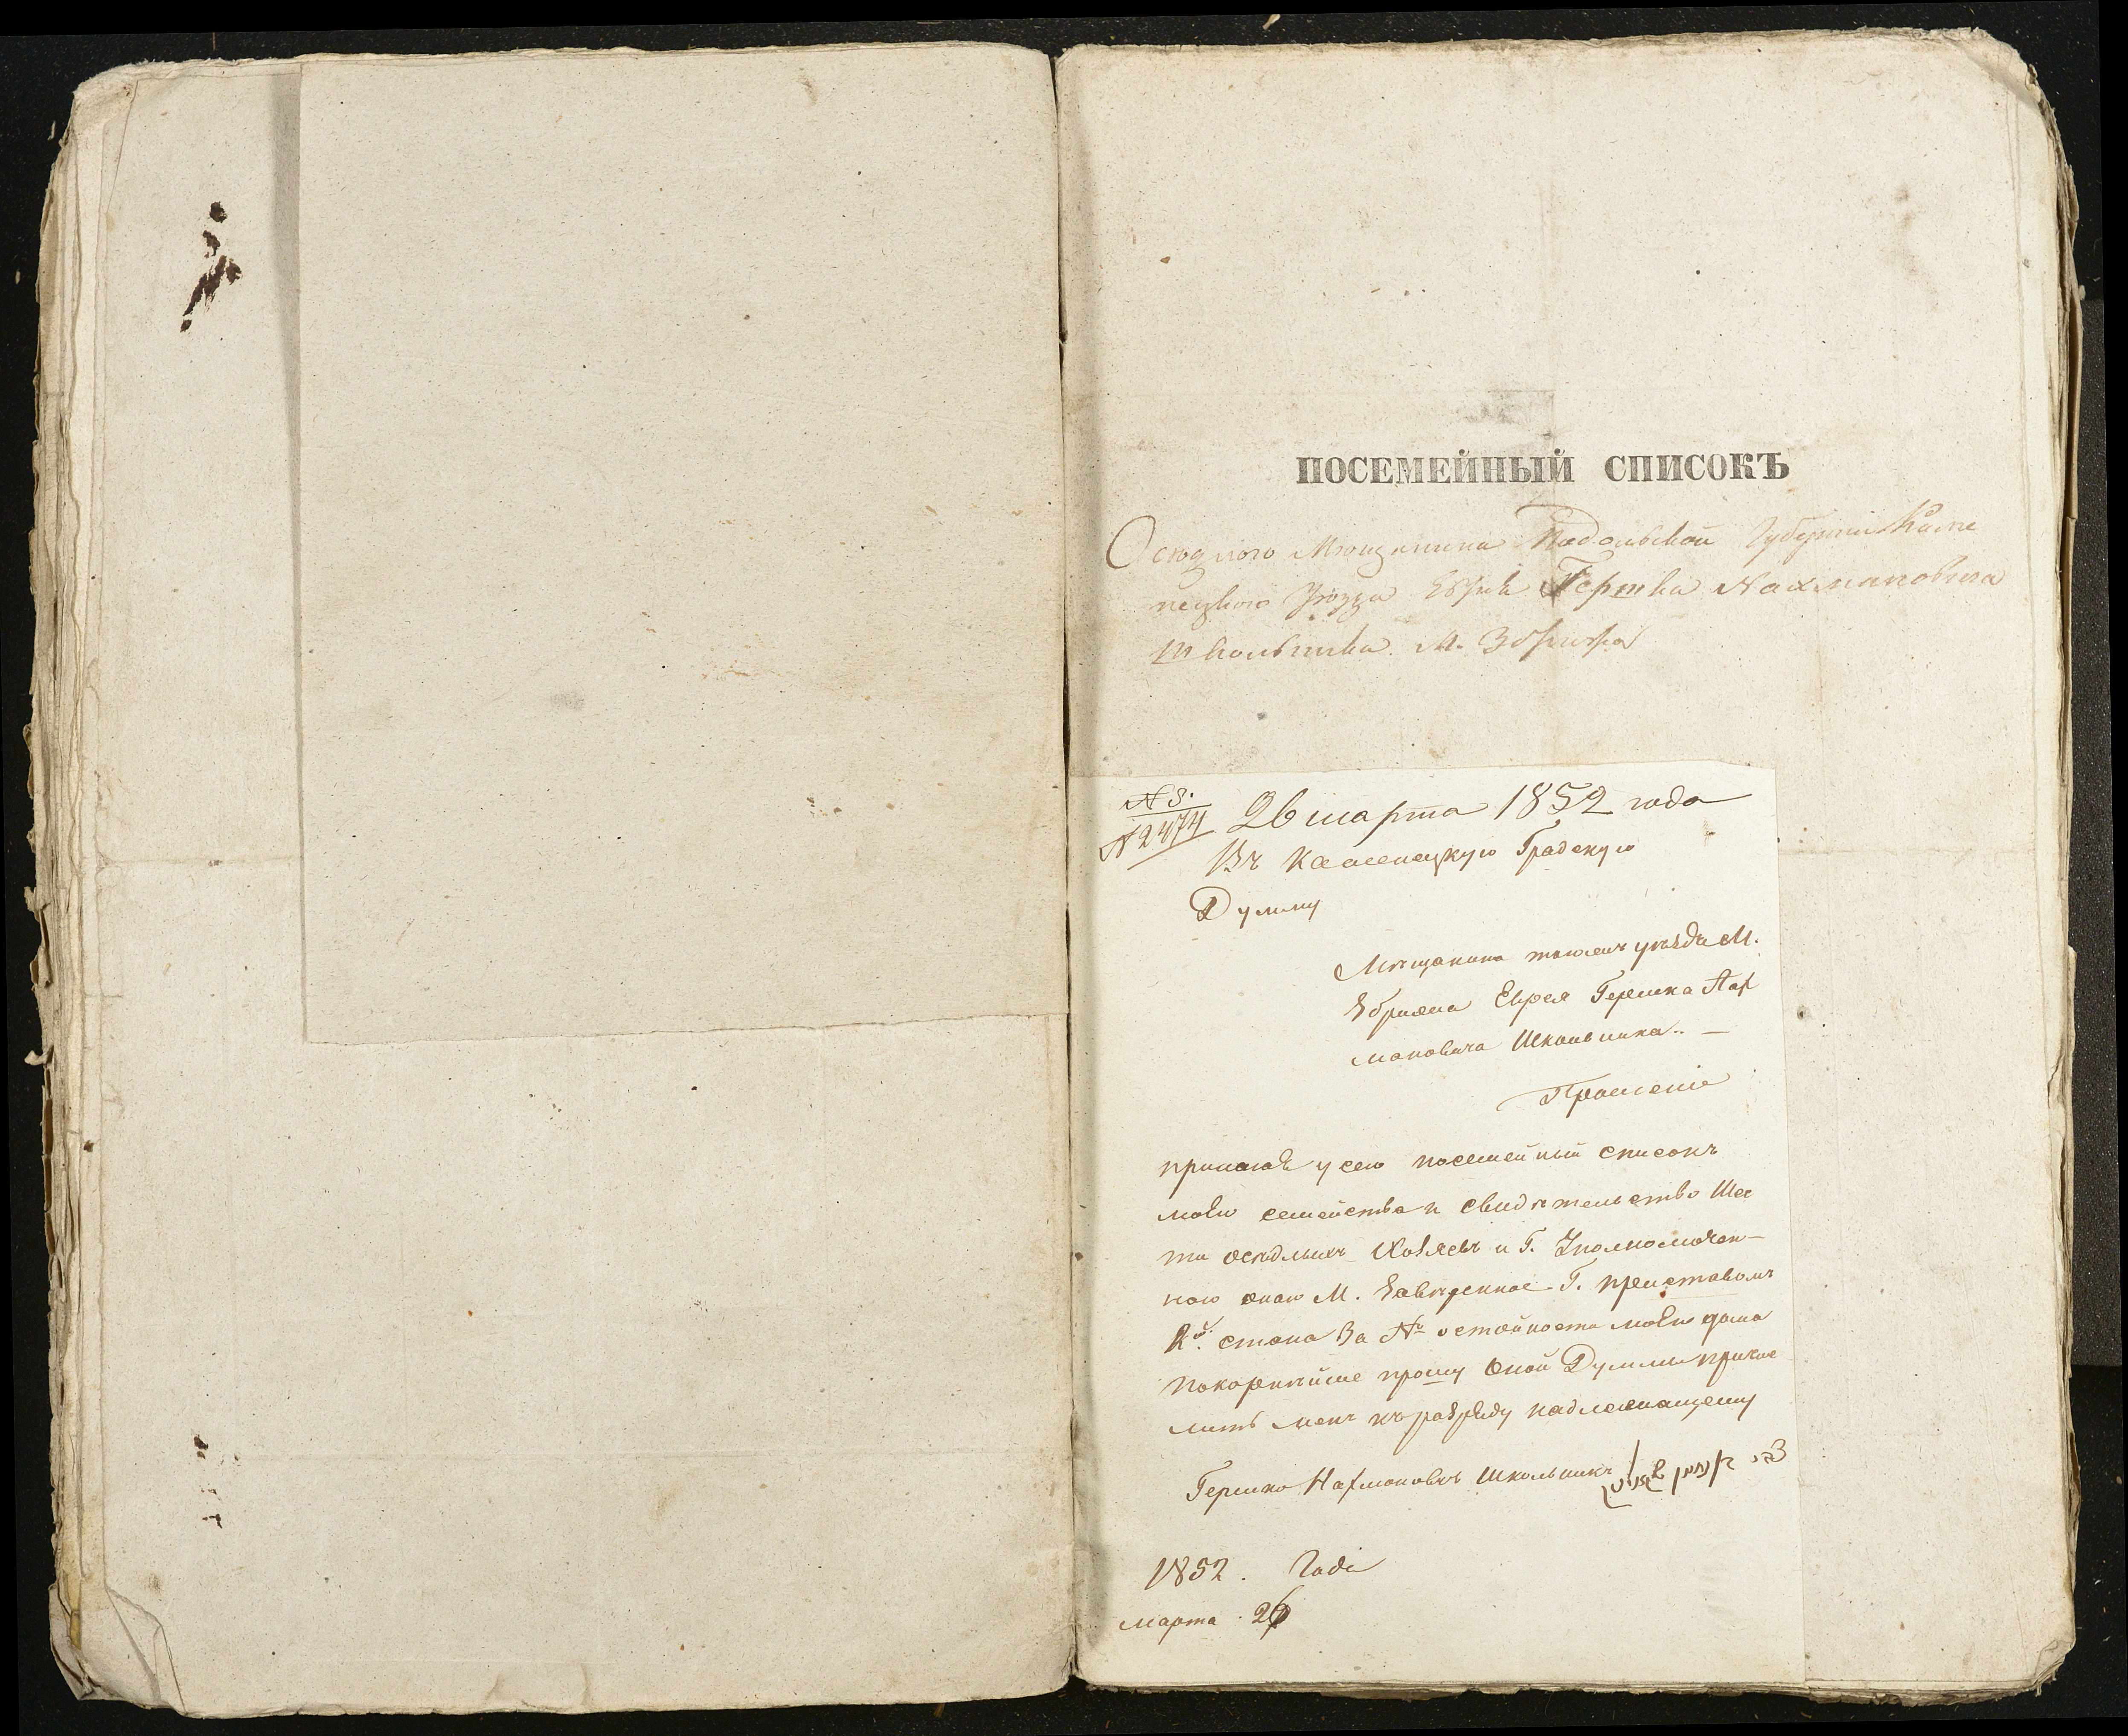 ПОСЕМЕЙНЫЙ СПИСОКЪ
Осюдлого Мющанина Подольской Губернии Каме
нецкого Уюзда Еврея Гершка Нахмановича
Школьника М. Збрижа
N 8.
N 2474
26 марта 1852 года
Въ Каменецкую Градскую
Думму
Мѣщанина тогожъ уѣзда М.
Збрижа Еврея Гершка Нах
мановича Школьника. —
Прошеніе
прилагая у сего посемейный списокъ
моего семейства и свидѣтельство Шес
ти осѣдлыхъ Хозяевъ и Г. Уполномочен-
ного оного М. Завѣренное Г. приставомъ
2й. стана За № о стойности моего дома
покорнѣйше прошу оной Думмы причис
лить менѣ къ разряду надлежащему
Гершко Нахмановичъ Школьникъ
1852. Года
марта 26